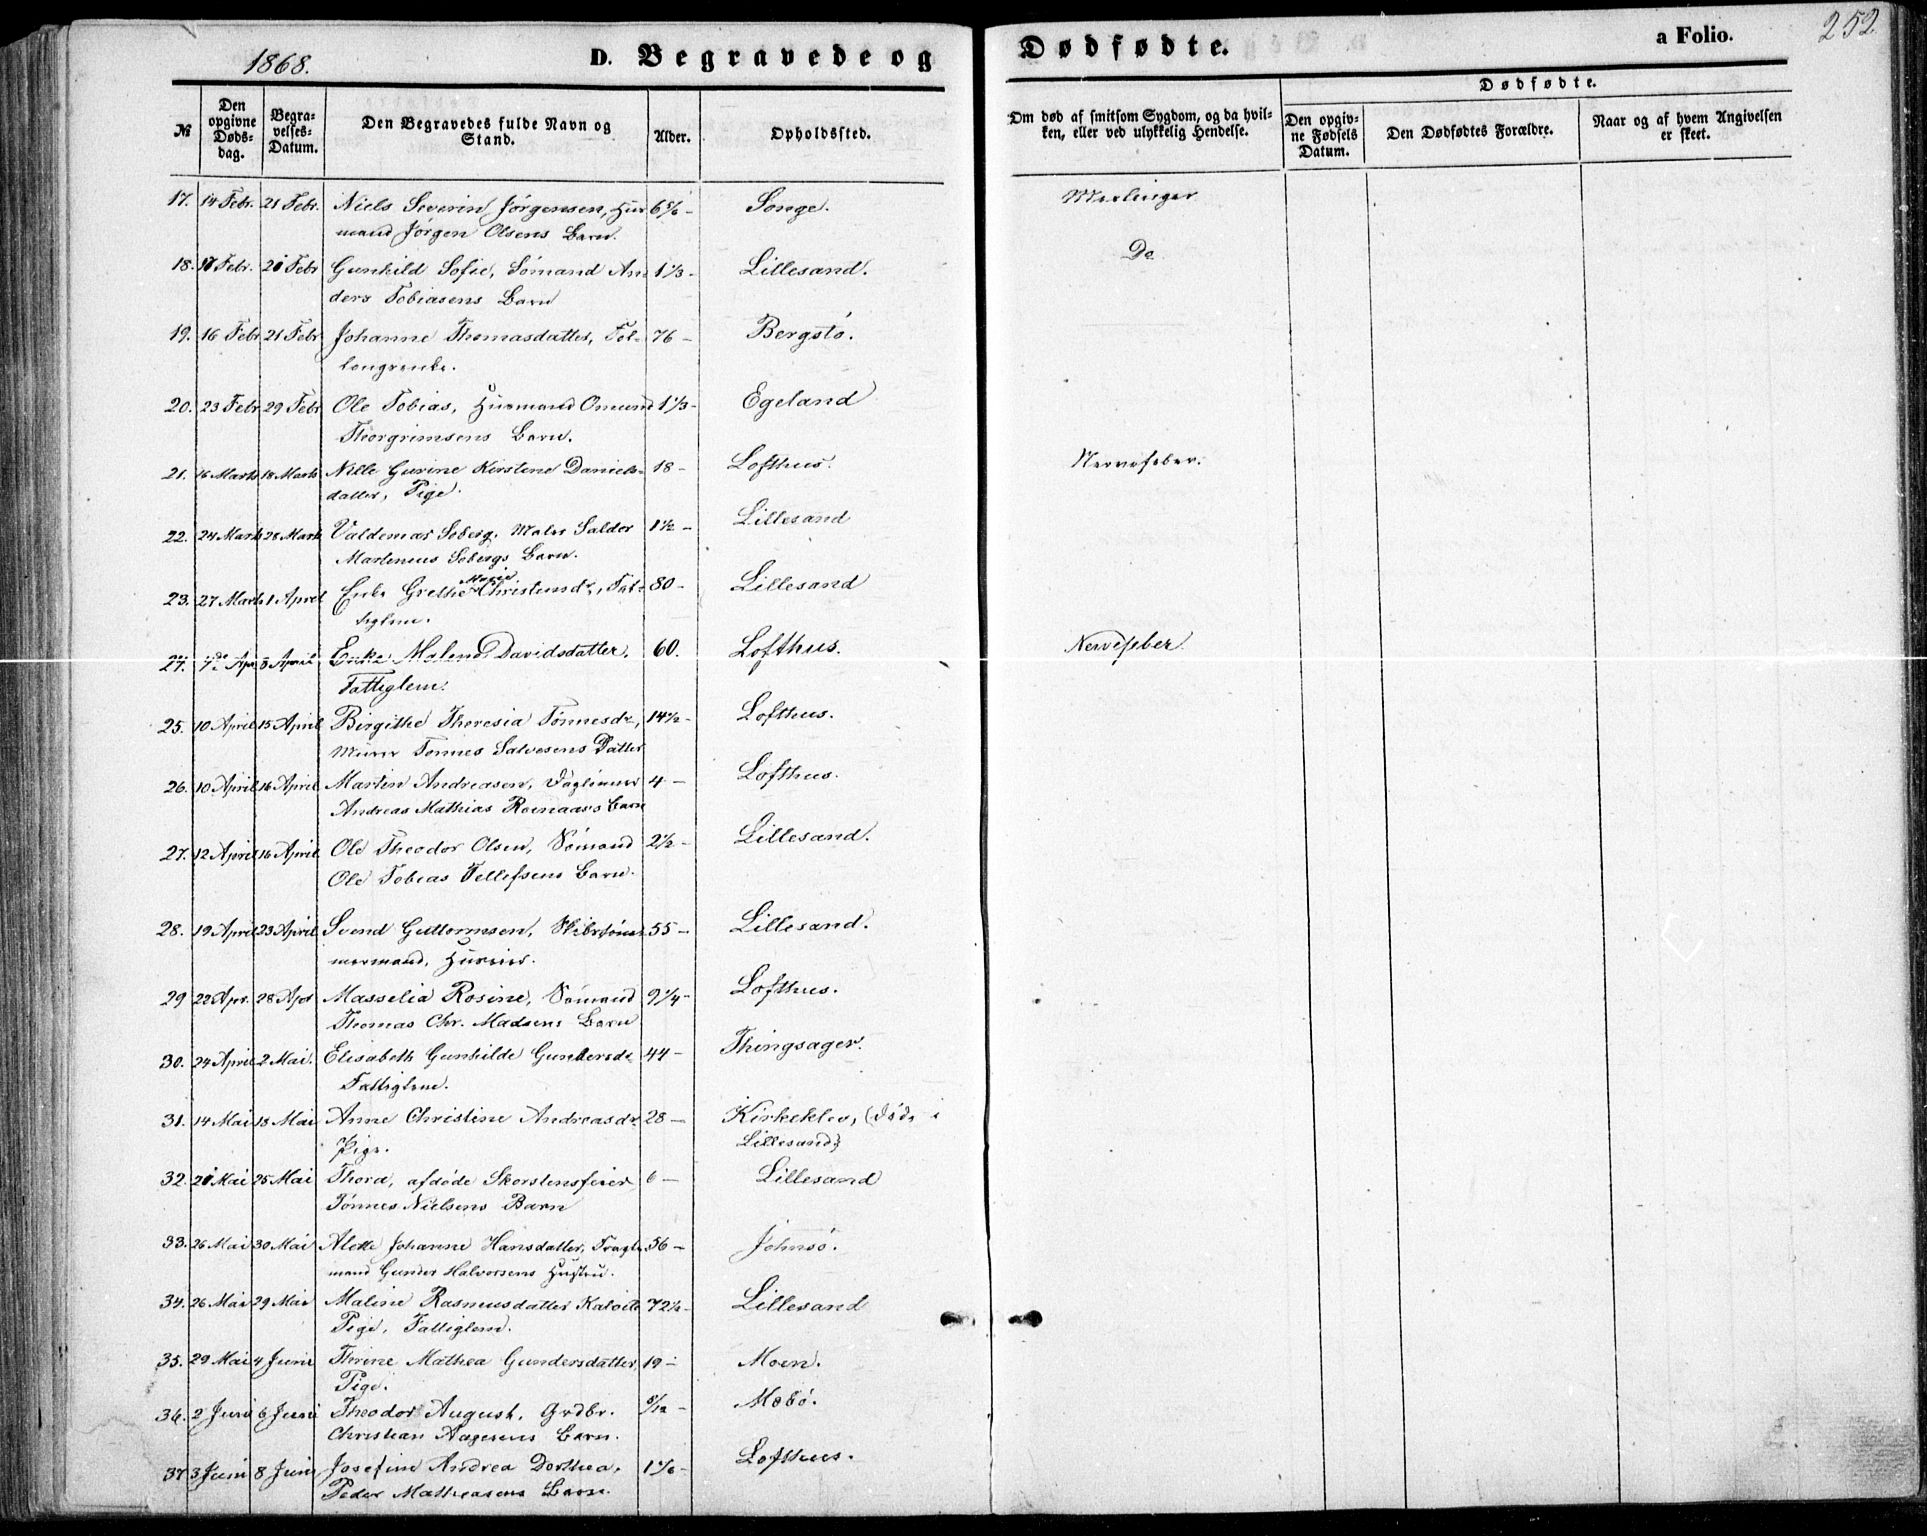 1868.
D. Begravede og Dødfødte.
a Folio.
252
№
Den opgivne Døds-dag.
Begra-velses-Datum.
Den Begravedes fulde Navn og Stand.
Alder.
Opholdssted.
Om død af smitsom Sygdom, og da hvil-ken, eller ved ulykkelig Hendelse.
Dødfødte.
Den opgiv-ne Fødsels Datum.
Den Dødfødtes Forældre.
Naar og af hvem Angivelsen er skeet.
17. 14 Febr. 21 Febr. Niels Severin Jørgensen, Hus- 6 5/6 - Songe. Meslinger
mand Jørgen Olsens Barn.
18. 17 Febr. 21 Febr Gunhild Sofie, Sömand An 1 1/3 - Lillesand. Do
ders Tobiasens Barn
19. 16 Febr 21 Febr Johanne Thomasdatter, Fol- 76 - Bergstö.
laugsenke.
20. 23 Febr 29 Febr Ole Tobias, Husmand Omund 1 1/3 - Egeland
Thorgrimsens Barn.
21. 16 Marts 18 Marts Nille Gurine Kirstene Daniels- 18 - Lofthus. Nervefeber.
datter, Pige.
22. 24 Marts 28 Marts Valdemar Soberg, Maler Salder 1 1/2 - Lillesand
Martenius Sobergs Barn.
23. 27 Marts 1 April Enke Grethe Marie Christensdr, Fat- 80 - Lillesand
tiglem.
24. 7de Apr 8 April Enke Malene Davidsdatter, 60. Lofthus. Nervefeber.
Fattiglem.
25. 10 April 15 April Birgithe Theresia Tönnesdr, 14 1/2 - Lofthus.
Murer Tönnes Salvesens Datter
26. 10 April 16 April Martin Andreasen, Daglonner 4 - Lofthus.
Andreas Mathias Roenaas's Barn
27. 12 April 16 April Ole Theodor Olsen, Sömand 2 1/2 - Lillesand.
Ole Tobias Tellefsens Barn.
28. 19 April 23 April Svend Guttormsen, Skibstöm- 55 - Lillesand.
mermand, Huseier.
29 22 Apr. 28 Apr Masselia Rosine, Sömand 9 1/4 - Lofthus.
Thomas Chr. Madsens Barn
30. 24 April 2 Mai. Elisabeth Gunhilde Gundersdr 44 - Thingsager.
Fattiglem.
31. 14 Mai 18 Mai Anne Christine Andreasdr 28 - Kirkeklev, (död i
Pige. Lillesand)
32. 21 Mai 25 Mai Thora, afdöde Skorstensfeier 6 - Lillesand
Tönnes Nielsens Barn
33. 26 Mai 30 Mai Alette Johanne Hansdatter, Fragte- 56 - Johnsö.
mand Gunder Halvorsens Hustru.
34. 26 Mai 29 Mai Maline Rasmusdatter 72 1/2 - Lillesand
Pige, Fattiglem.
35. 29 Mai 4 Juni Thrine Mathea Gundersdatter, 19 - Moen.
Pige.
36. 2 Juni 6 Juni Theodor August, Grdbr. 5/12 - Mæbö.
Christian Aagesens Barn.
37 3 Juni 8 Juni Josefine Andrea Dorthea, 1 1/6 - Lofthus.
Peder Mathiasens Barn.